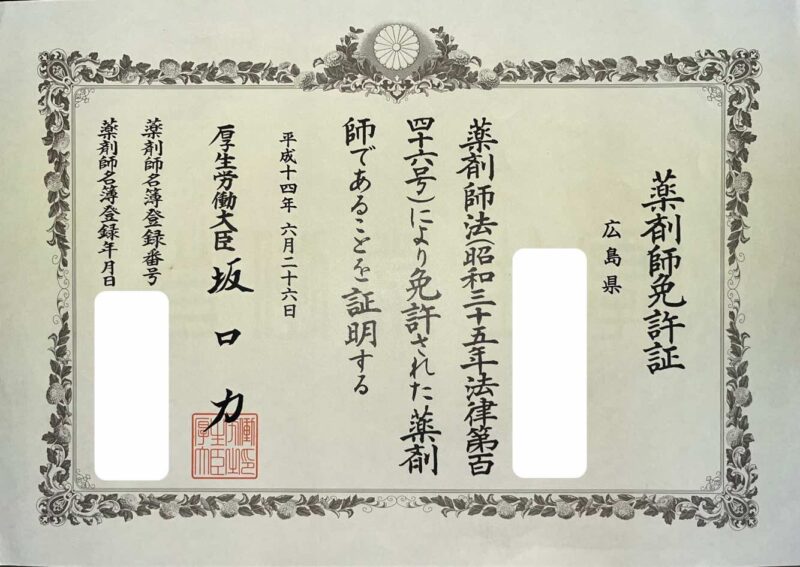 薬剤師免許証
広島県
薬剤師法(昭和三十五年法律第百
四十六号)により免許された薬剤
師であることを証明する
平成十四年 六月二十六日
厚生労働大臣 坂口力
厚生労働大臣之印
薬剤師名簿登録番号
薬剤師名簿登録年月日